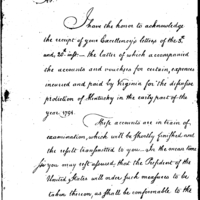 Sir.
I have the honor to acknowledge
the receipt of your Excellency's letters of the 3d
and 22d inst. – the latter of which accompanied
the accounts and vouchers for certain expences
incurred and paid by Virginia for the defensive
protection of Kentucky in the early part of the
year 1791.
These accounts are in train of
examination, which will be shortly finished and
the result transmitted to you – In the mean time
you may rest assured, that the President of the
United States will order such measures to be
taken thereon, as shall be conformable to the